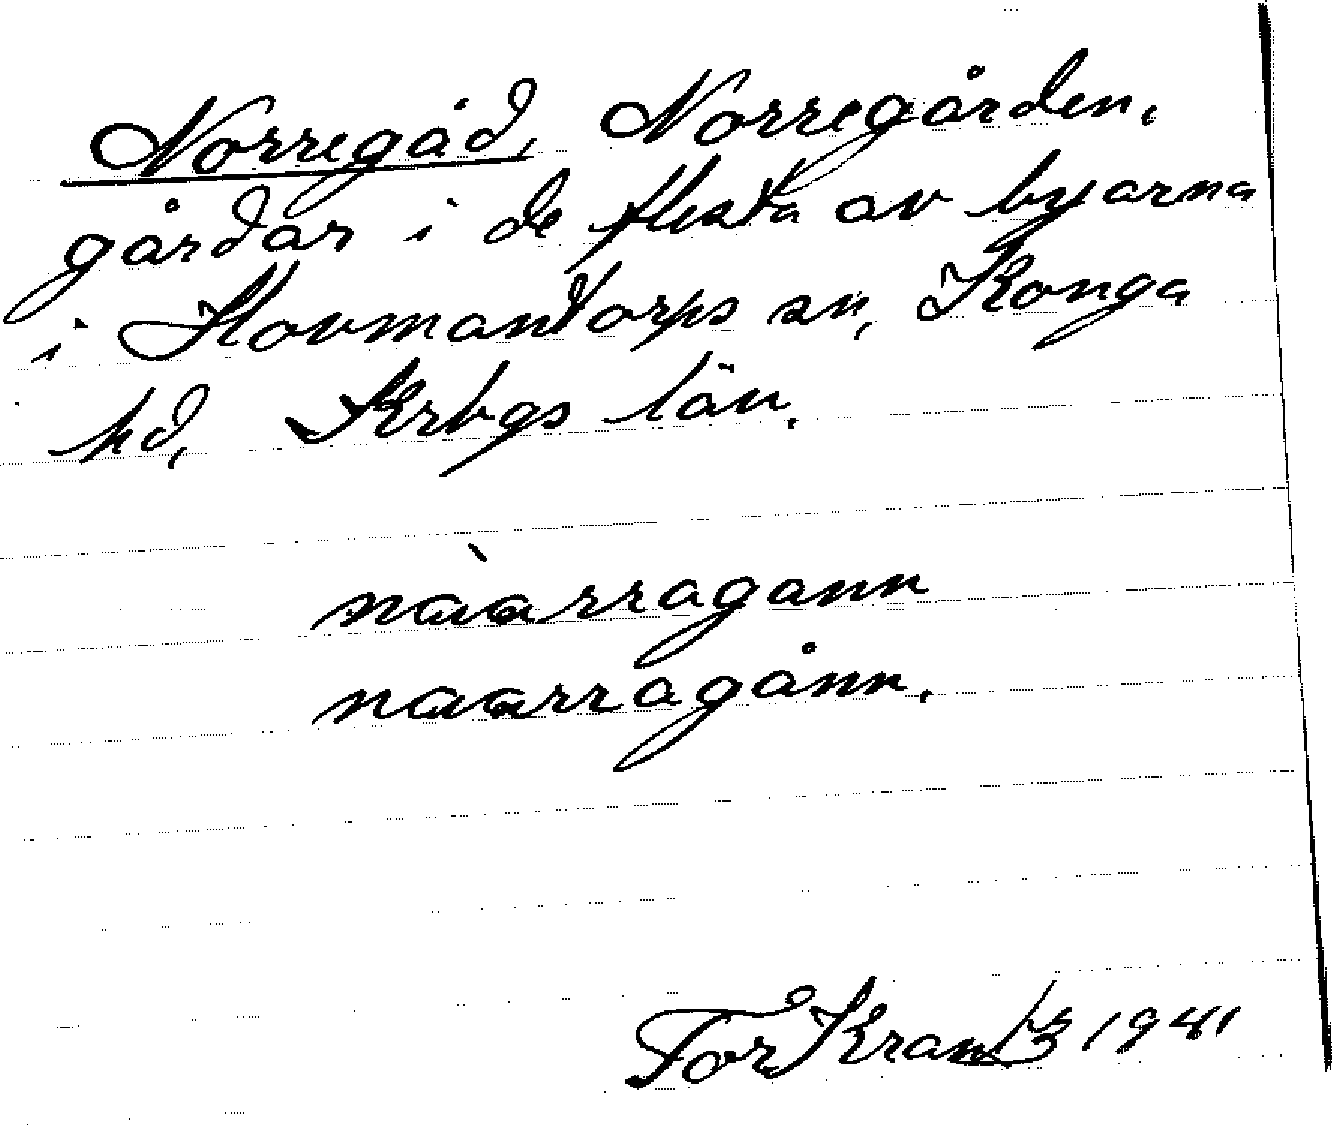 Norregåd, Norregården,
gårdar i de flesta av byarna
i Hovmantorps sn, Konga
hd, Krbgs län.
nàarragann
naarragånn.
Tor Krantz 1941